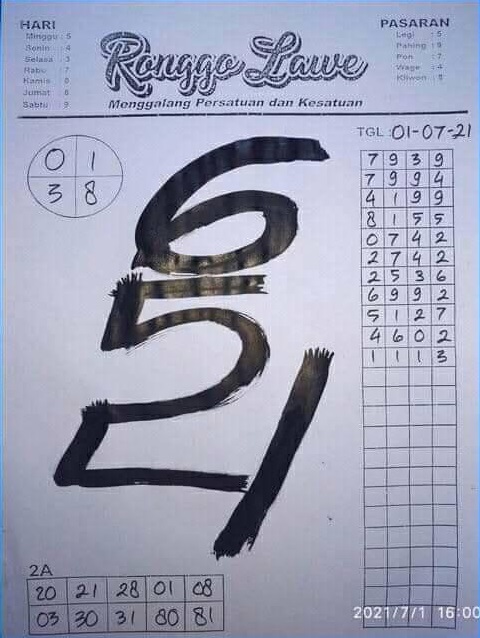 HARI
Minggu : 5
Senin : 4
Selasa : 3
Rabu : 7
Kamis : 8
Jumat : 6
Sabtu : 9
Ronggo Lawe
Menggalang Persatuan dan Kesatuan
PASARAN
Legi : 5
Pahing : 9
Pon : 7
Wage : 4
Kliwon : 8
TGL : 01-07-21
0 1
3 8
6
5
21
7 9 3 9
7 9 9 4
4 1 9 9
8 1 5 5
0 7 4 2
2 7 4 2
2 5 3 6
6 9 9 2
5 1 2 7
4 6 0 2
1 1 1 3
2A
20 21 28 01 08
03 30 31 80 81
2021/7/1 16:00